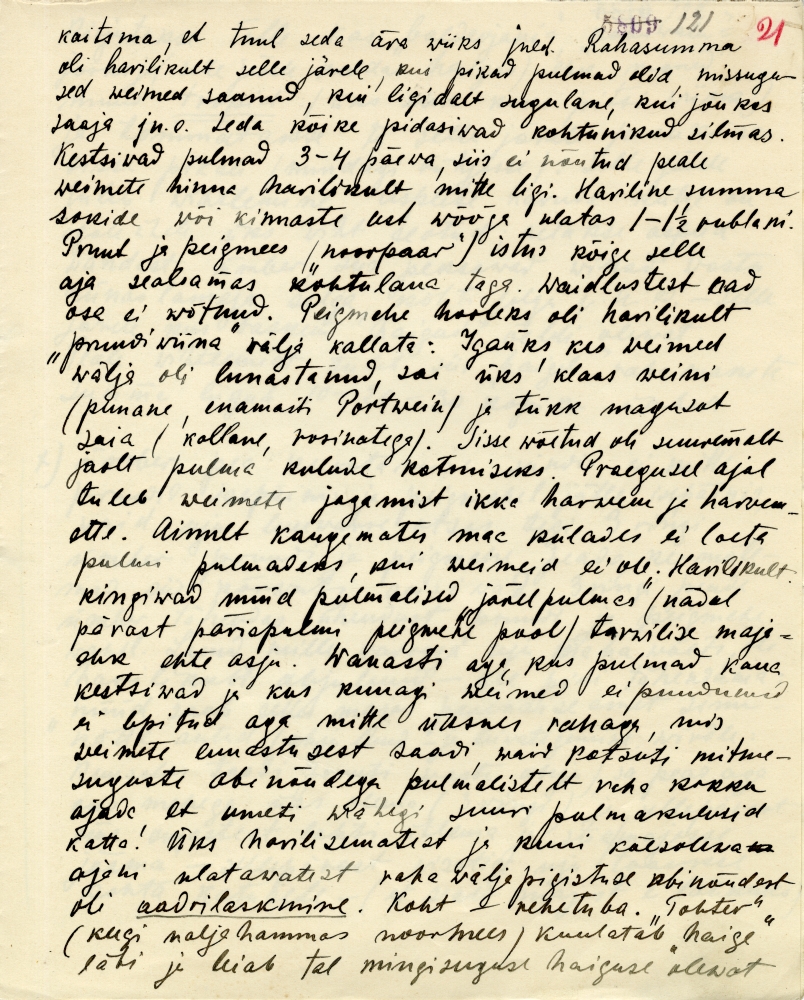 5809 121 21
kaitsma, et tuul seda ära wiiks jned. Rahasumma
oli harilikult selle järele, kui pikad pulmad olid, missugu-
sed weimed saanud, kui ligidalt sugulane, kui jõukas
saaja jn.e. Seda kõike pidasiwad kohtunikud silmas.
Kestsiwad pulmad 3-4 päewa, siis ei nõutud peale
weimete hinna harilikult mitte ligi. Hariline summa
sokide wõi kinnaste eest wööga ulatas 1-1½ rublani.
Pruut ja peigmees (noorpaar") istus kõige selle
aja sealsamas "kohtulaua taga. Waidlustest nad
osa ei wõtnud. Peigmehe hooleks oli harilikult
„pruudiwiina" wälja kallata: Igaüks, kes weimed
wälja oli lunastanud, sai üks klaas weini
(punane, enamasti Portwein) ja tükk magusat
saia (kollane, rosinatega). Sisse wõetud oli suuremalt
jaolt pulma kulude katmiseks. Praegusel ajal
tuleb weimete jagamist ikka harwem ja harwem-
ette. Ainult kaugemates maa külades ei loeta
pulmi pulmadeks, kui weimeid ei ole. Harilikult
kingiwad nüüd pulmalised „järelpulmas" (nädal
pärast päripulmi peigmehe pool) tarwilise maja-
ehk ehte asja. Wanasti aga, kus pulmad kaua
kestsiwad ja kus kunagi weimed ei puudunud
ei lepitud aga mitte üksnes rahaga, mis
weimete lunastusest saadi, waid katsuti mitme-
suguste abinõudega pulmalistelt raha kokku
ajada, et umeti wähegi suuri pulmakulusid
katta! Üks harilisematest ja kuni käesolewa
ajani ulatawatest raha wäljapigistuse abinõudest
oli aadrilaskmine. Koht - rehetuba. „Tohter"
(keegi naljahammas noormees) kuulatab "haige"
läbi ja leiab tal mingisuguse haiguse "olewat